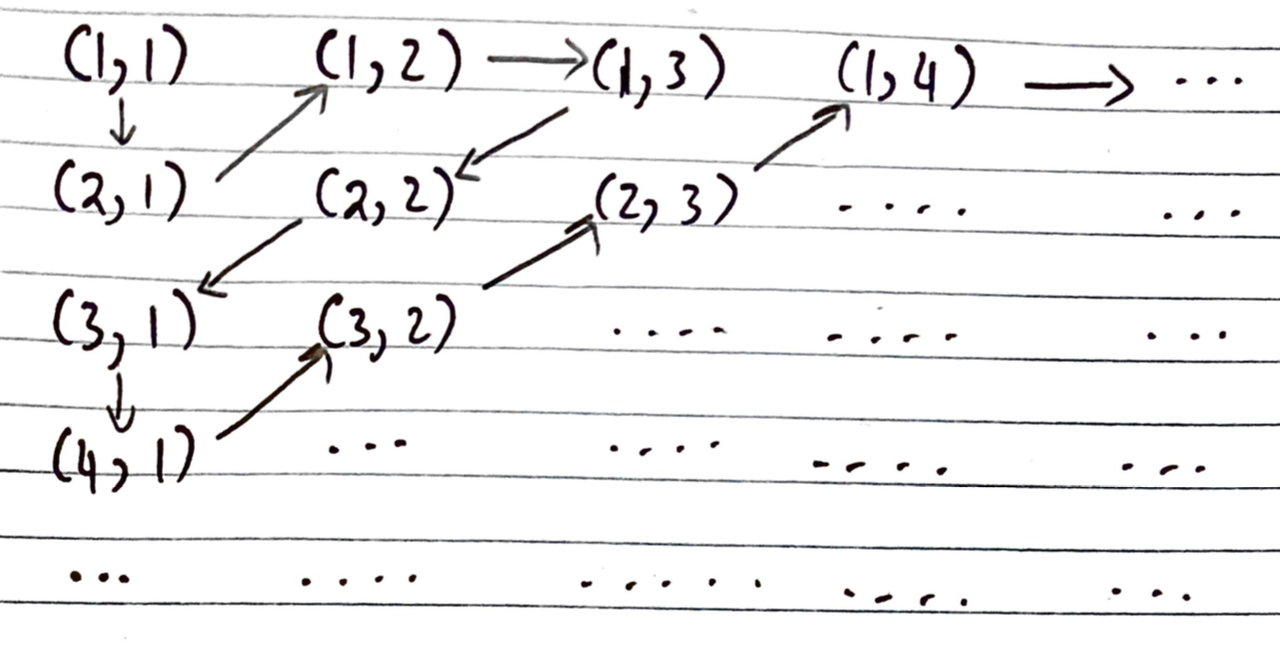 (1,1) ↓ (1,2) → (1,3) (1,4) → ...
(2,1) ↗ (2,2) ↙ (2,3) ↗ .... ...
(3,1) ↙ (3,2) ↗ .... .... ...
↓
(4,1) ↗ ... .... .... ...
... .... ..... .... ...